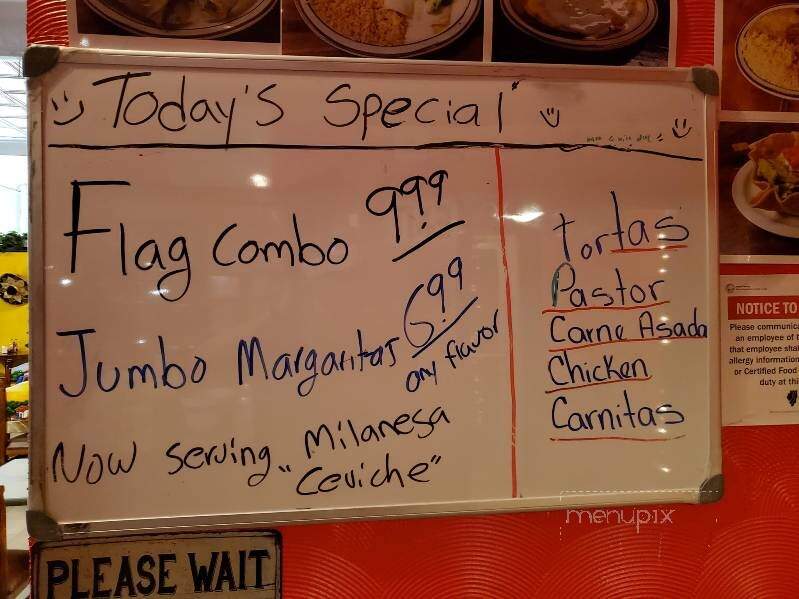 Today's Special
Flag Combo 9.99
Jumbo Margaritas 6.99
any flavor
Now serving "Milanesa
Ceviche"
Tortas
Pastor
Carne Asada
Chicken
Carnitas
NOTICE TO
Please communica
an employee of t
that employee shal
allergy information
or Certified Food
duty at thi
menupix
PLEASE WAIT